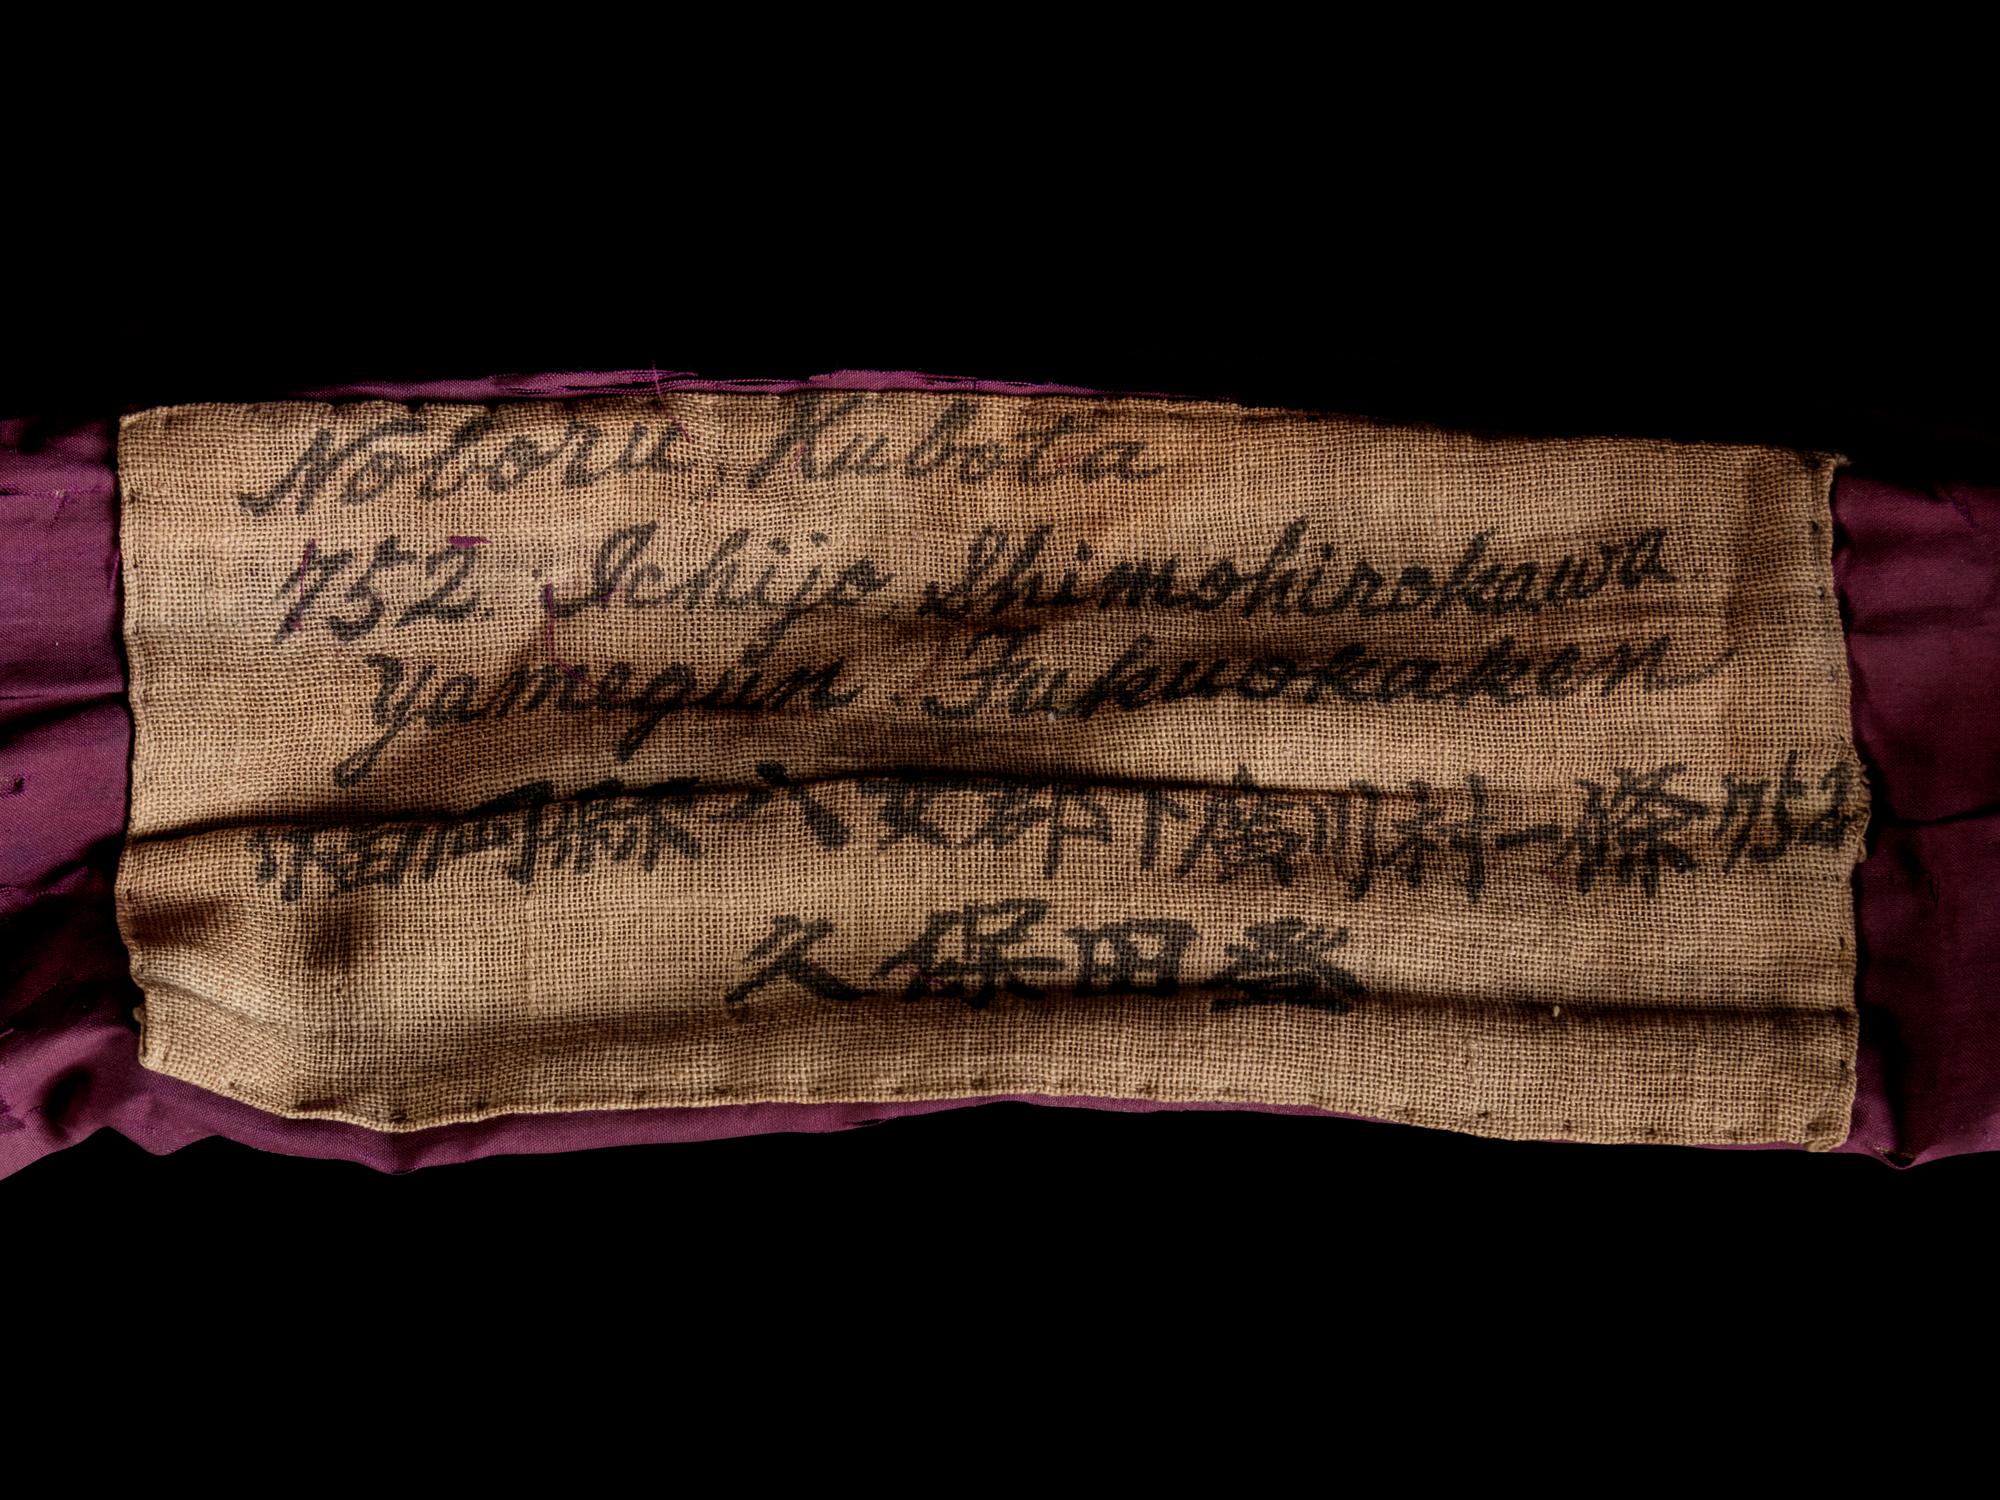 Noboru Kubota
752 Ichijo Shimohirokawa
Yamegun Fukuokaken
福岡縣八女郡下廣川村一條752
久保田登